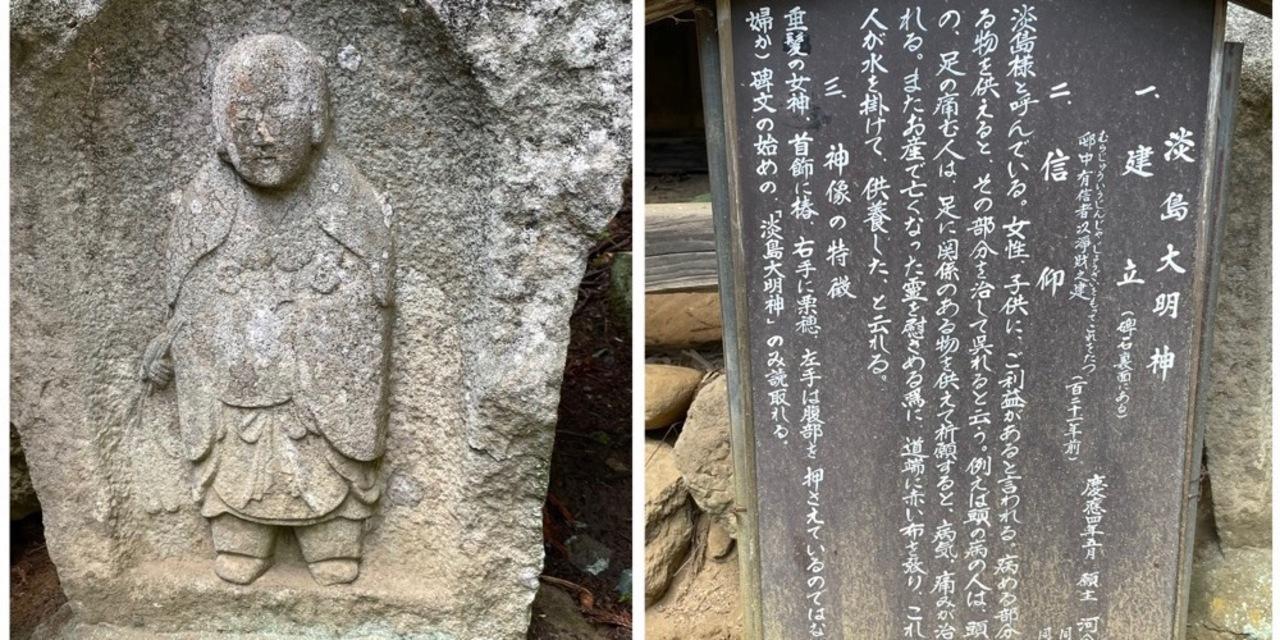 淡島大明神
一、建立（碑石裏面にある）
むらじゅうゆうしんじゃじょうざいをもってこれをたつ
邨中有信者以淨財之建（百二十一年前）
慶應四年五月 願主 河
二、信仰
淡島様と呼んでいる。女性、子供に、ご利益があると言われる、病める部分
る物を供えると、その部分を治して呉れると云う。例えば頭の病の人は、頭
の、足の痛む人は、足に関係のある物を供えて祈願すると、病気、痛みが治
れる。またお産で亡くなった霊を慰さめる為に、道端に赤い布を張り、これ
人が水を掛けて、供養した、と云れる。
三、神像の特徴
垂髪の女神、首飾に椿、右手に栗穂、左手は腹部を押さえているのではな
婦か）碑文の始めの、「淡島大明神」のみ読取れる。